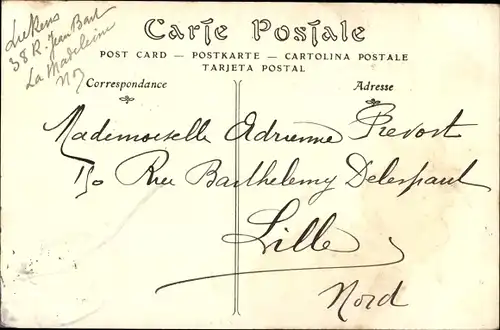 Liekens
38 R. Jean Bart
La Madeleine
Carte Postale
POST CARD — POSTKARTE — CARTOLINA POSTALE
TARJETA POSTAL
Correspondance
Adresse
Mademoiselle Adrienne Prevost
150 Rue Barthelemy Delespaul
Lille
Nord